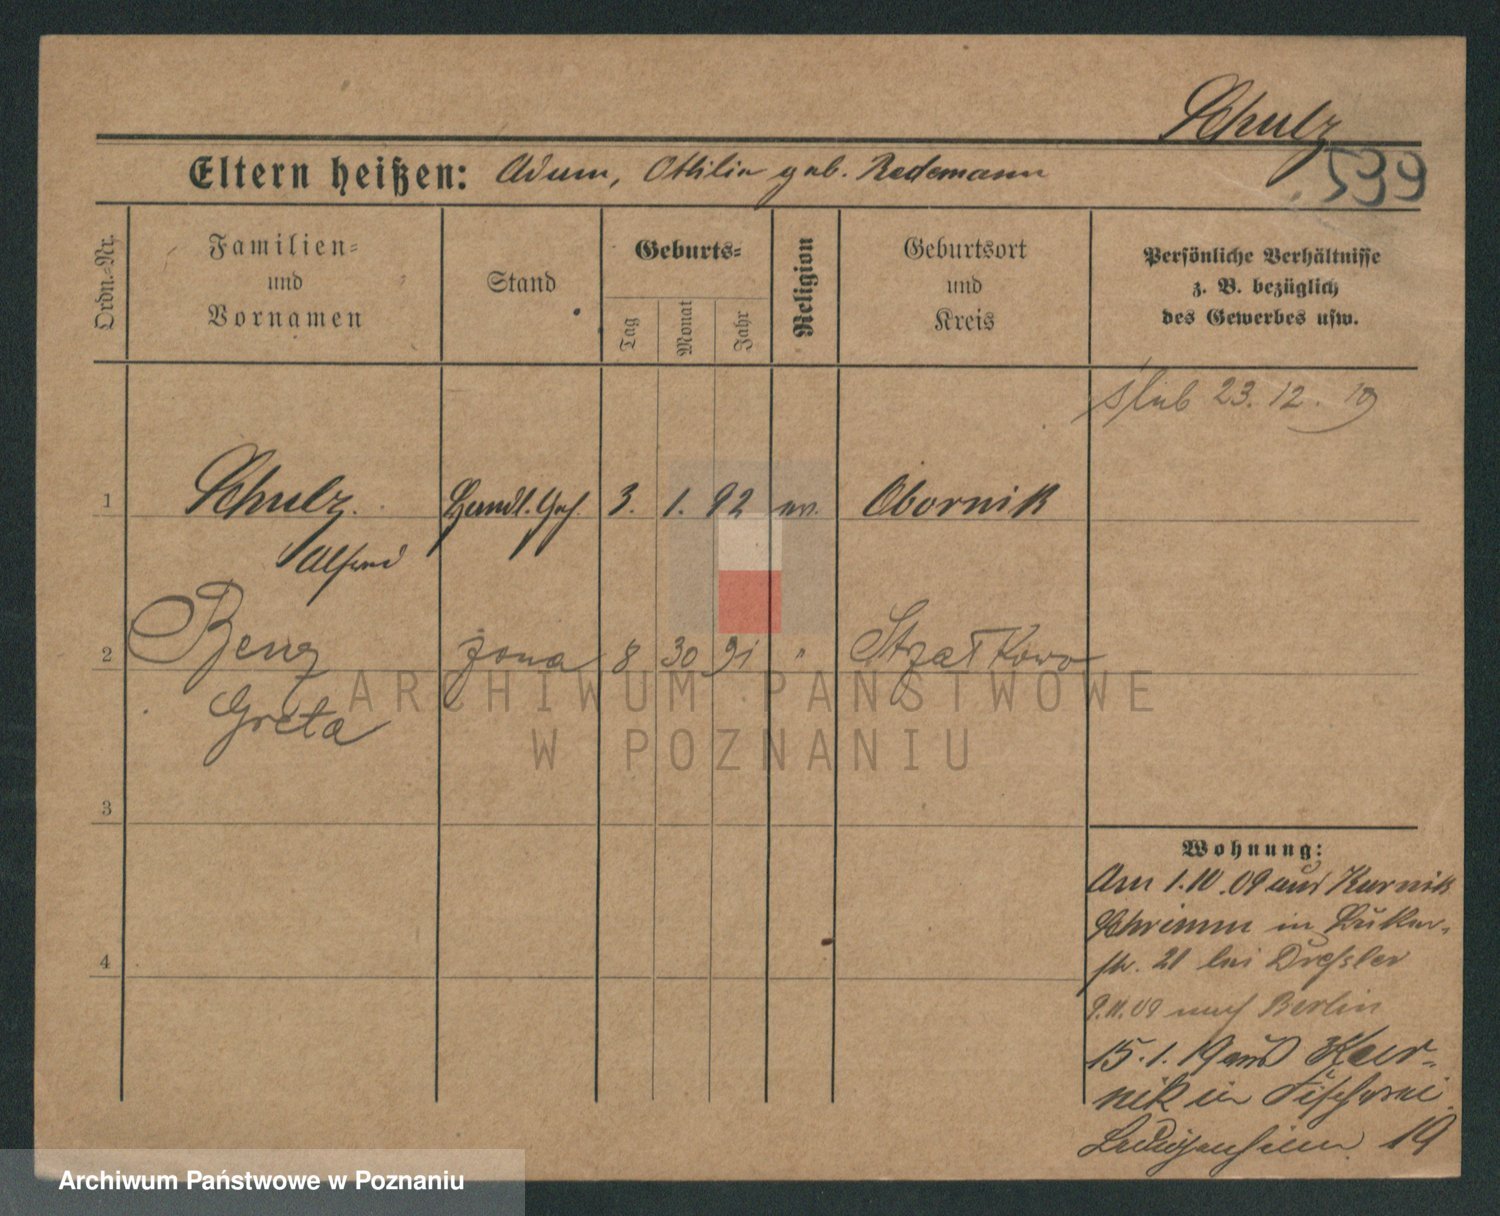 Schulz
599
Eltern heißen: Adam, Ottilie geb. Redemann
Ordn.-Nr.
Familien-
und
Vornamen
Stand
Geburts-
Tag
Monat
Jahr
Religion
Geburtsort
und
Kreis
Persönliche Verhältnisse
z. B. bezüglich
des Gewerbes usw.
ślub 23. 12. 19
1 Schulz Handl. Geh. 3. 1. 92 ev. Obornik
Alfred
2 Benz żona 8 30 91 " Strzałkowo
Greta
ARCHIWUM PAŃSTWOWE
W POZNANIU
3
4
Wohnung:
Am 1.10.09 aus Kurnik
Schrimm in
str. 21 bei Dreßler
9.11.09 nach Berlin
15.1.19 aus Kur-
nik in Fischerei
19
Archiwum Państwowe w Poznaniu